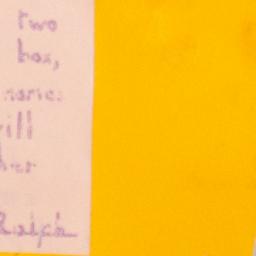 two
box,
names
ill
her
Ralph